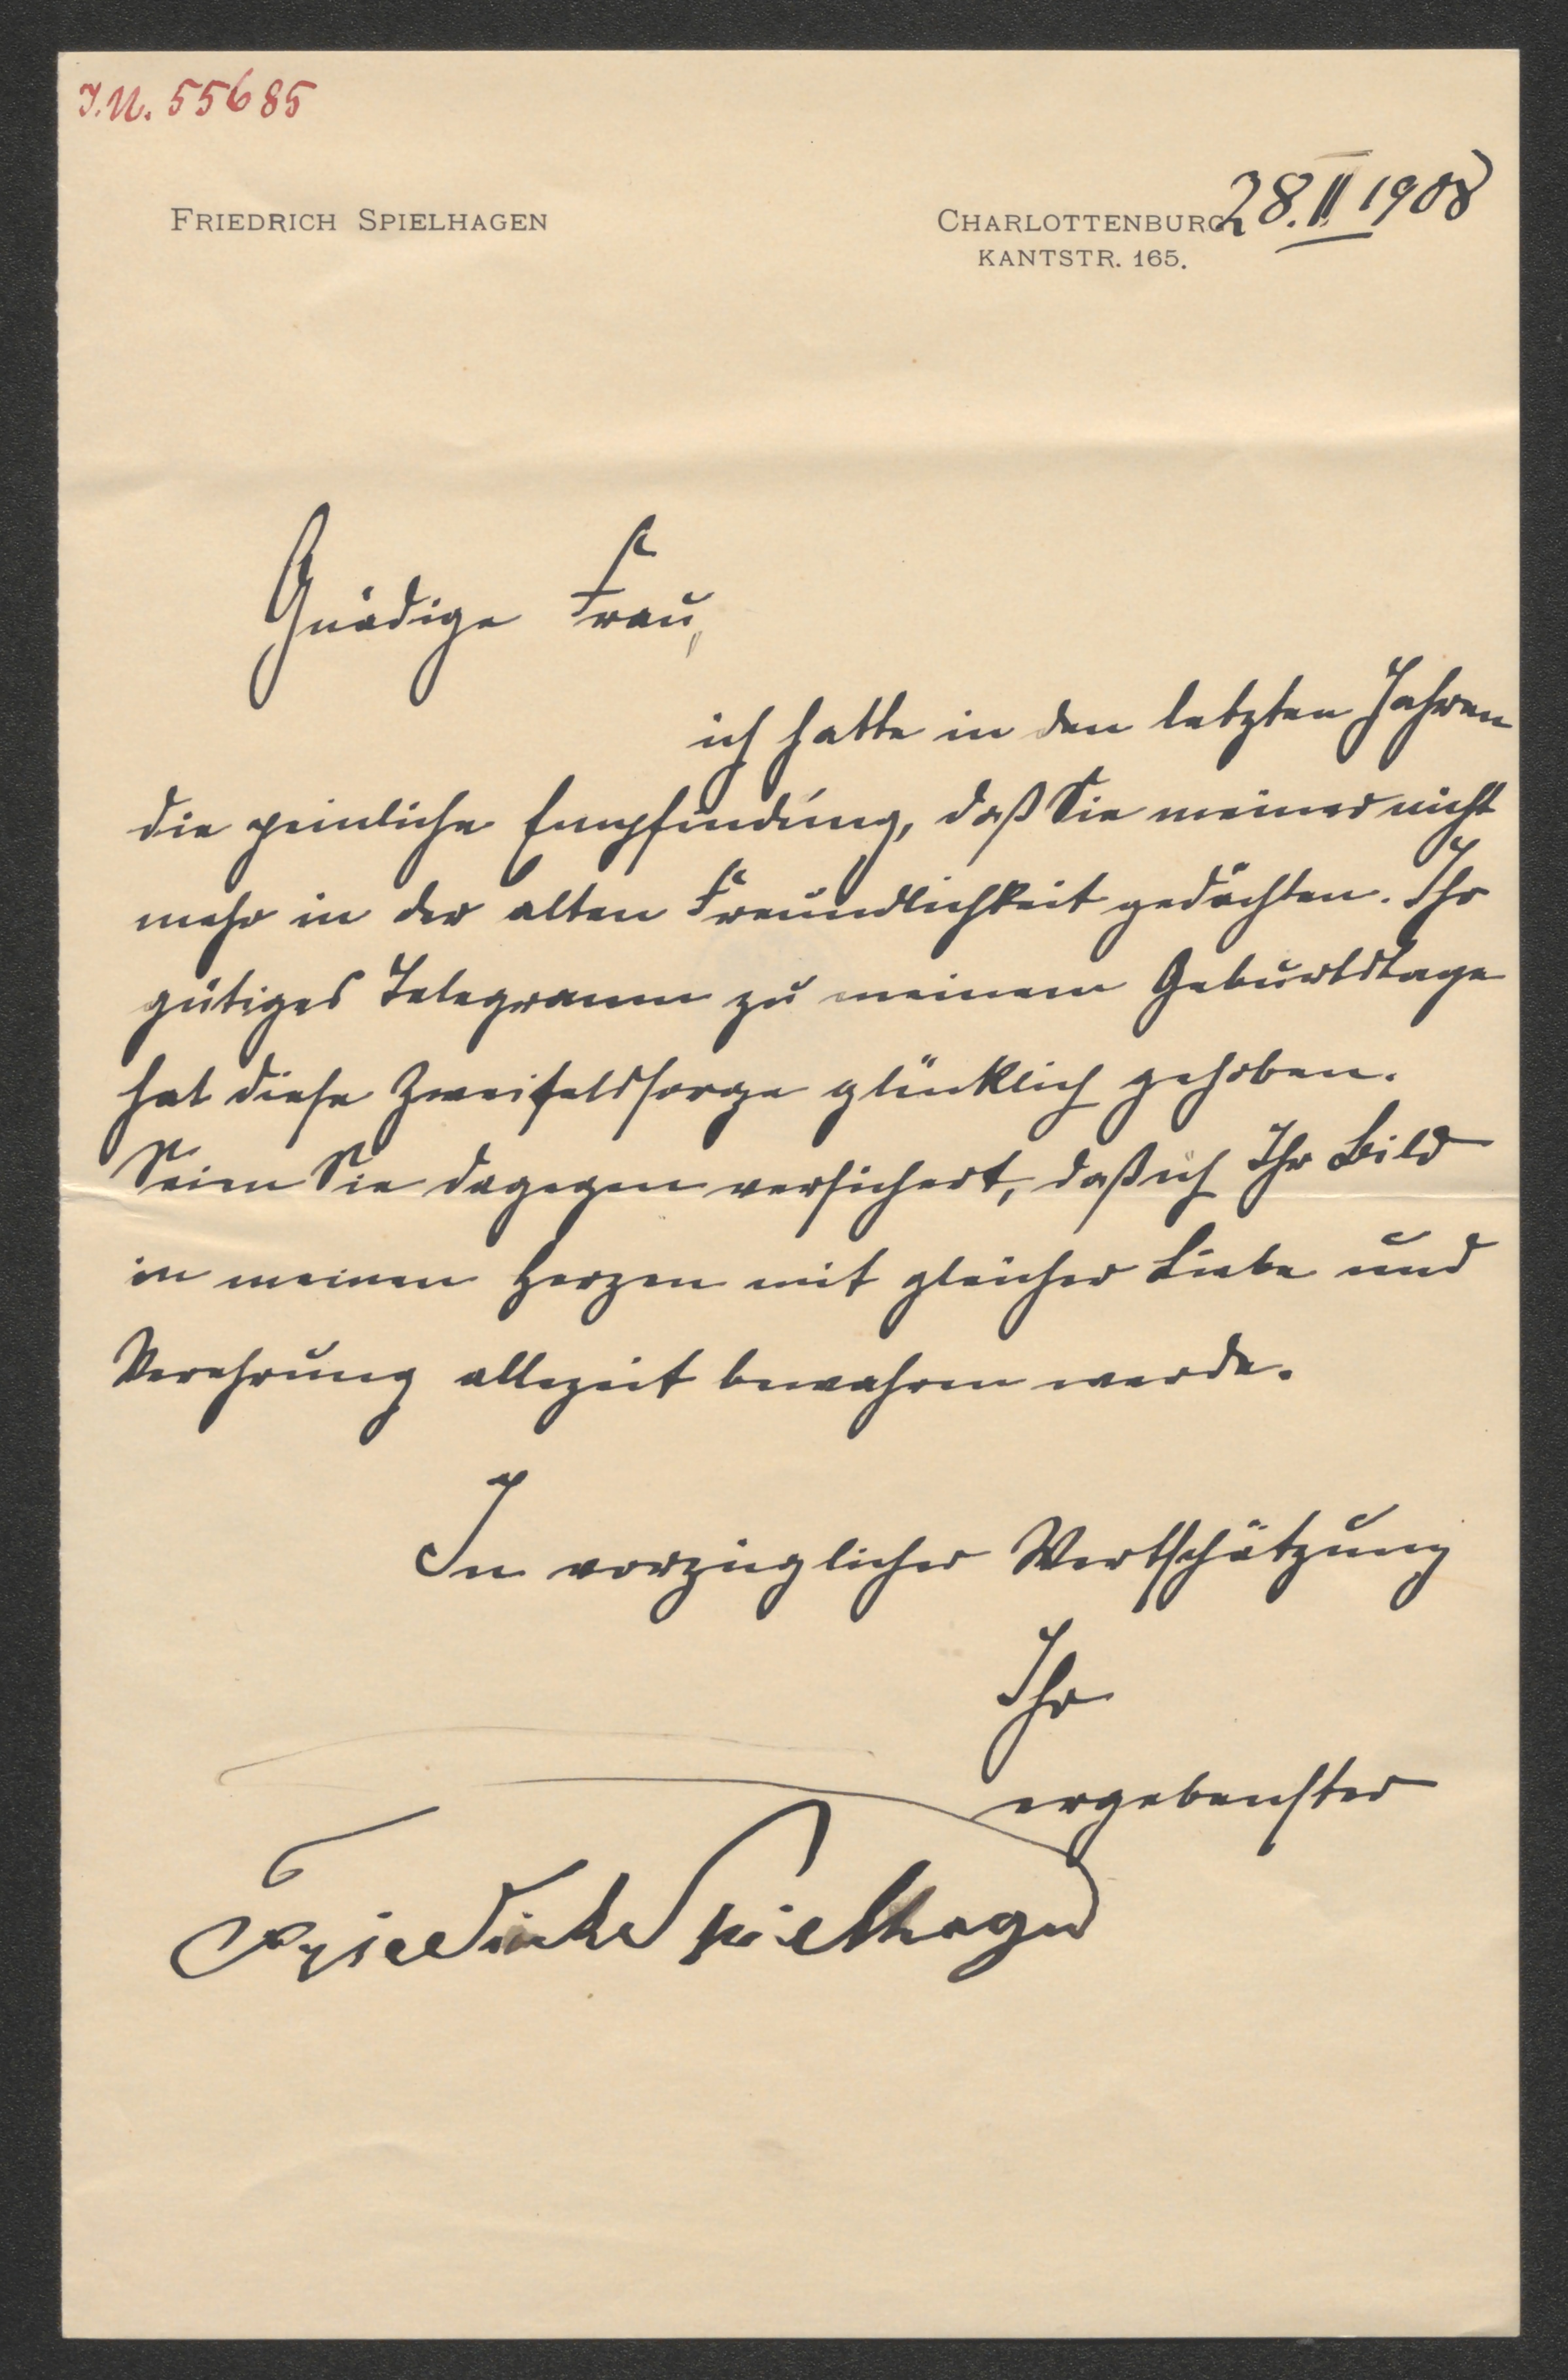 I.N. 55685
FRIEDRICH SPIELHAGEN
CHARLOTTENBURG 28. II 1908
KANTSTR. 165.
Gnädige Frau,
ich hatte in den letzten Jahren
die peinliche Empfindung, daß Sie meiner nicht
mehr in der alten Freundlichkeit gedächten. Ihr
gütiges Telegramm zu meinem Geburtstage
hat diese Zweifelssorge glücklich gehoben.
Seien Sie dagegen versichert, daß ich Ihr Bild
in meinem Herzen mit gleicher Liebe und
Verehrung allezeit bewahren werde.
In vorzüglicher Wertschätzung
Ihr
ergebenster
Friedrich Spielhagen